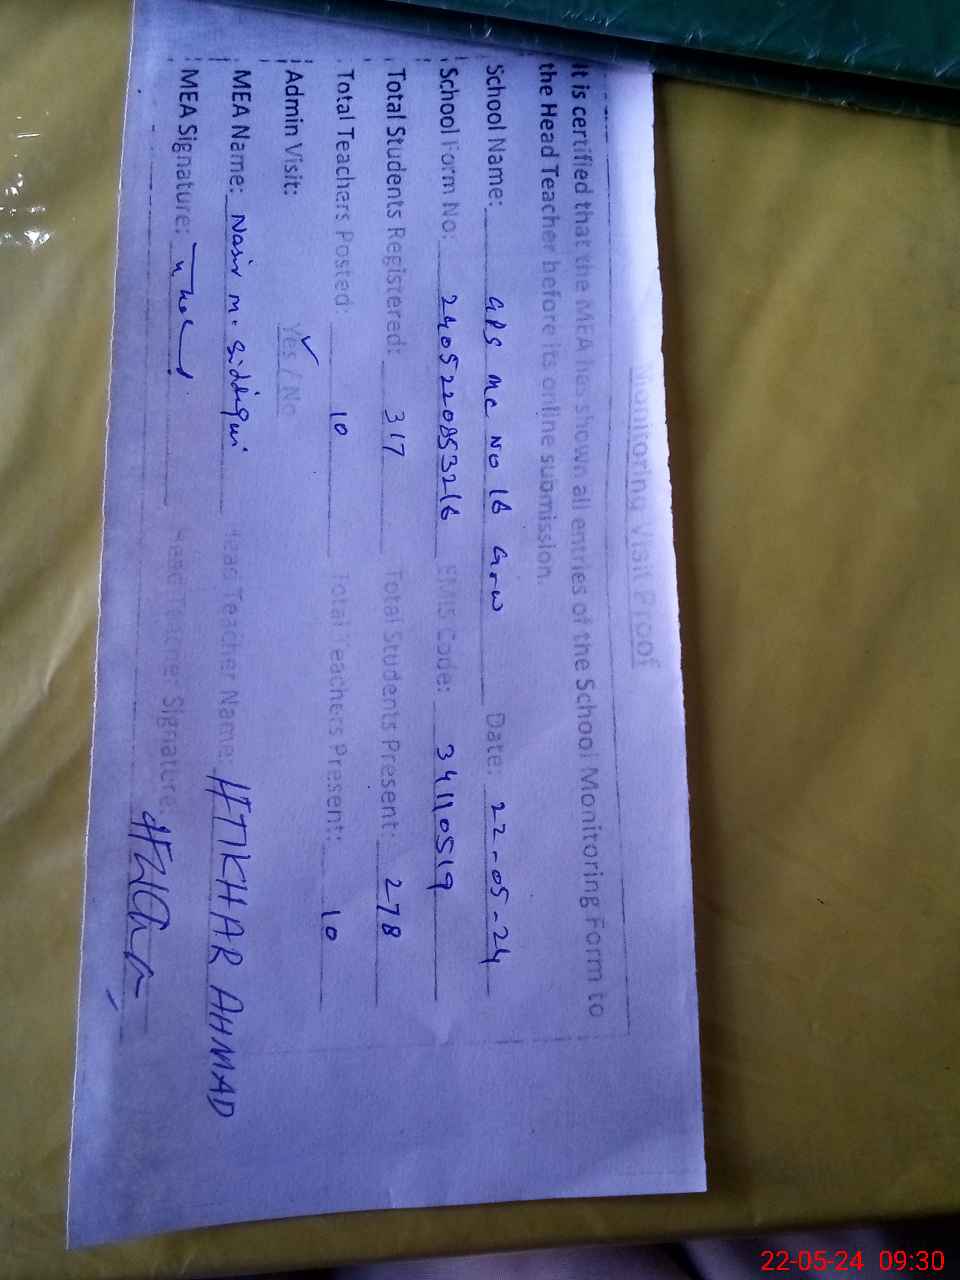 Monitoring Visit Proof
It is certified that the MEA has shown all entries of the School Monitoring Form to
the Head Teacher before its online submission.
School Name: GPS MC No 16 GRW Date: 22-05-24
School Form No: 24052208532 16 EMIS Code: 34110519
Total Students Registered: 317 Total Students Present: 278
Total Teachers Posted: 10 Total Teachers Present: 10
Admin Visit: Yes / No
MEA Name: Nasir M. Siddiqui Head Teacher Name: IFTIKHAR AHMAD
MEA Signature: Head Teacher Signature:
22-05-24 09:30